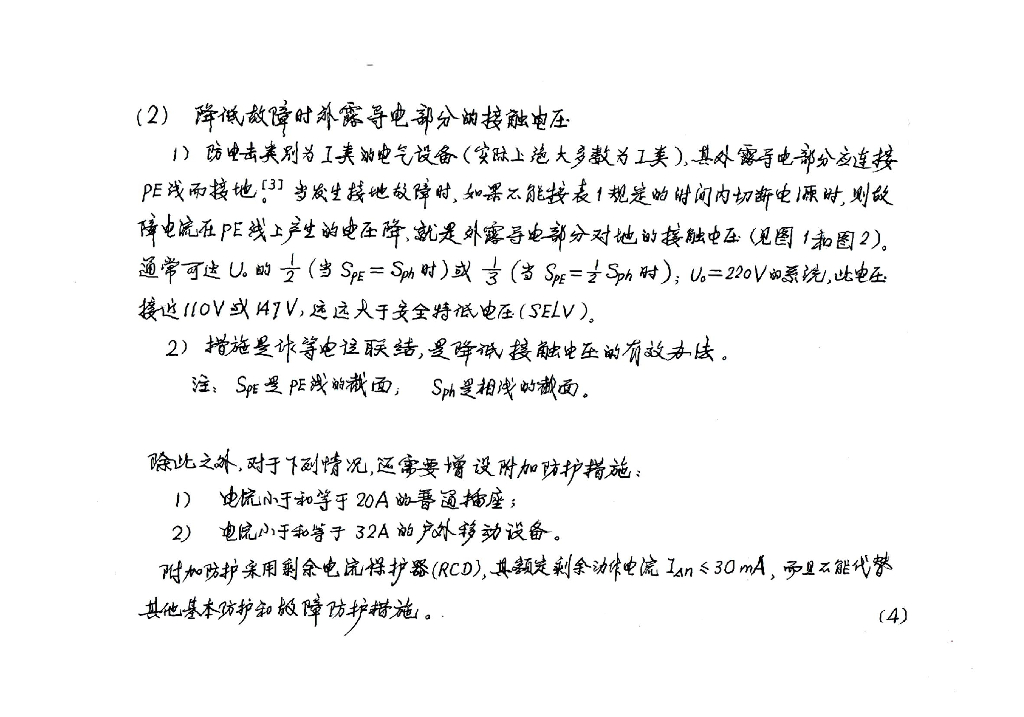 (2) 降低故障时外露导电部分的接触电压
1) 防电击类别为I类的电气设备(实际上绝大多数为I类),其外露导电部分应连接
PE线而接地。[3] 当发生接地故障时,如果不能按表1规定的时间内切断电源时,则故
障电流在PE线上产生的电压降,就是外露导电部分对地的接触电压(见图1和图2)。
通常可达U₀的 1/2 (当 SPE = Sph 时)或 2/3 (当 SPE = 1/2 Sph 时); U₀=220V的系统,此电压
接近110V或147V,远远大于安全特低电压(SELV)。
2) 措施是作等电位联结,是降低接触电压的有效办法。
注: SPE是PE线的截面; Sph是相线的截面。
除此之外,对于下列情况,还需要增设附加防护措施:
1) 电流小于和等于20A的普通插座;
2) 电流小于和等于 32A 的户外移动设备。
附加防护采用剩余电流保护器(RCD),其额定剩余动作电流 IΔn ≤ 30 mA, 而且不能代替
其他基本防护和故障防护措施。
(4)